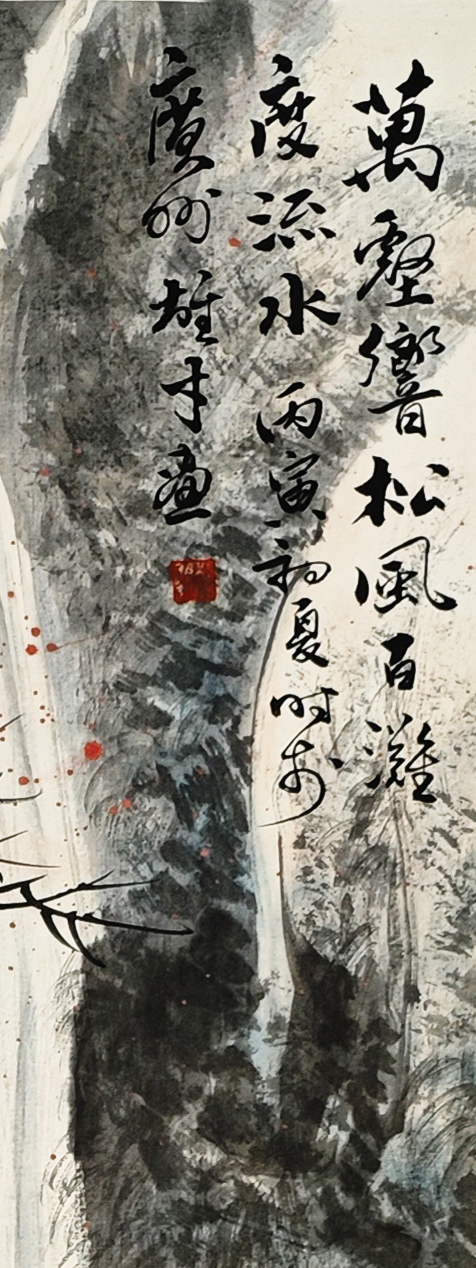 萬壑響松風百灘
度流水丙寅初夏時於
廣州雄才畫